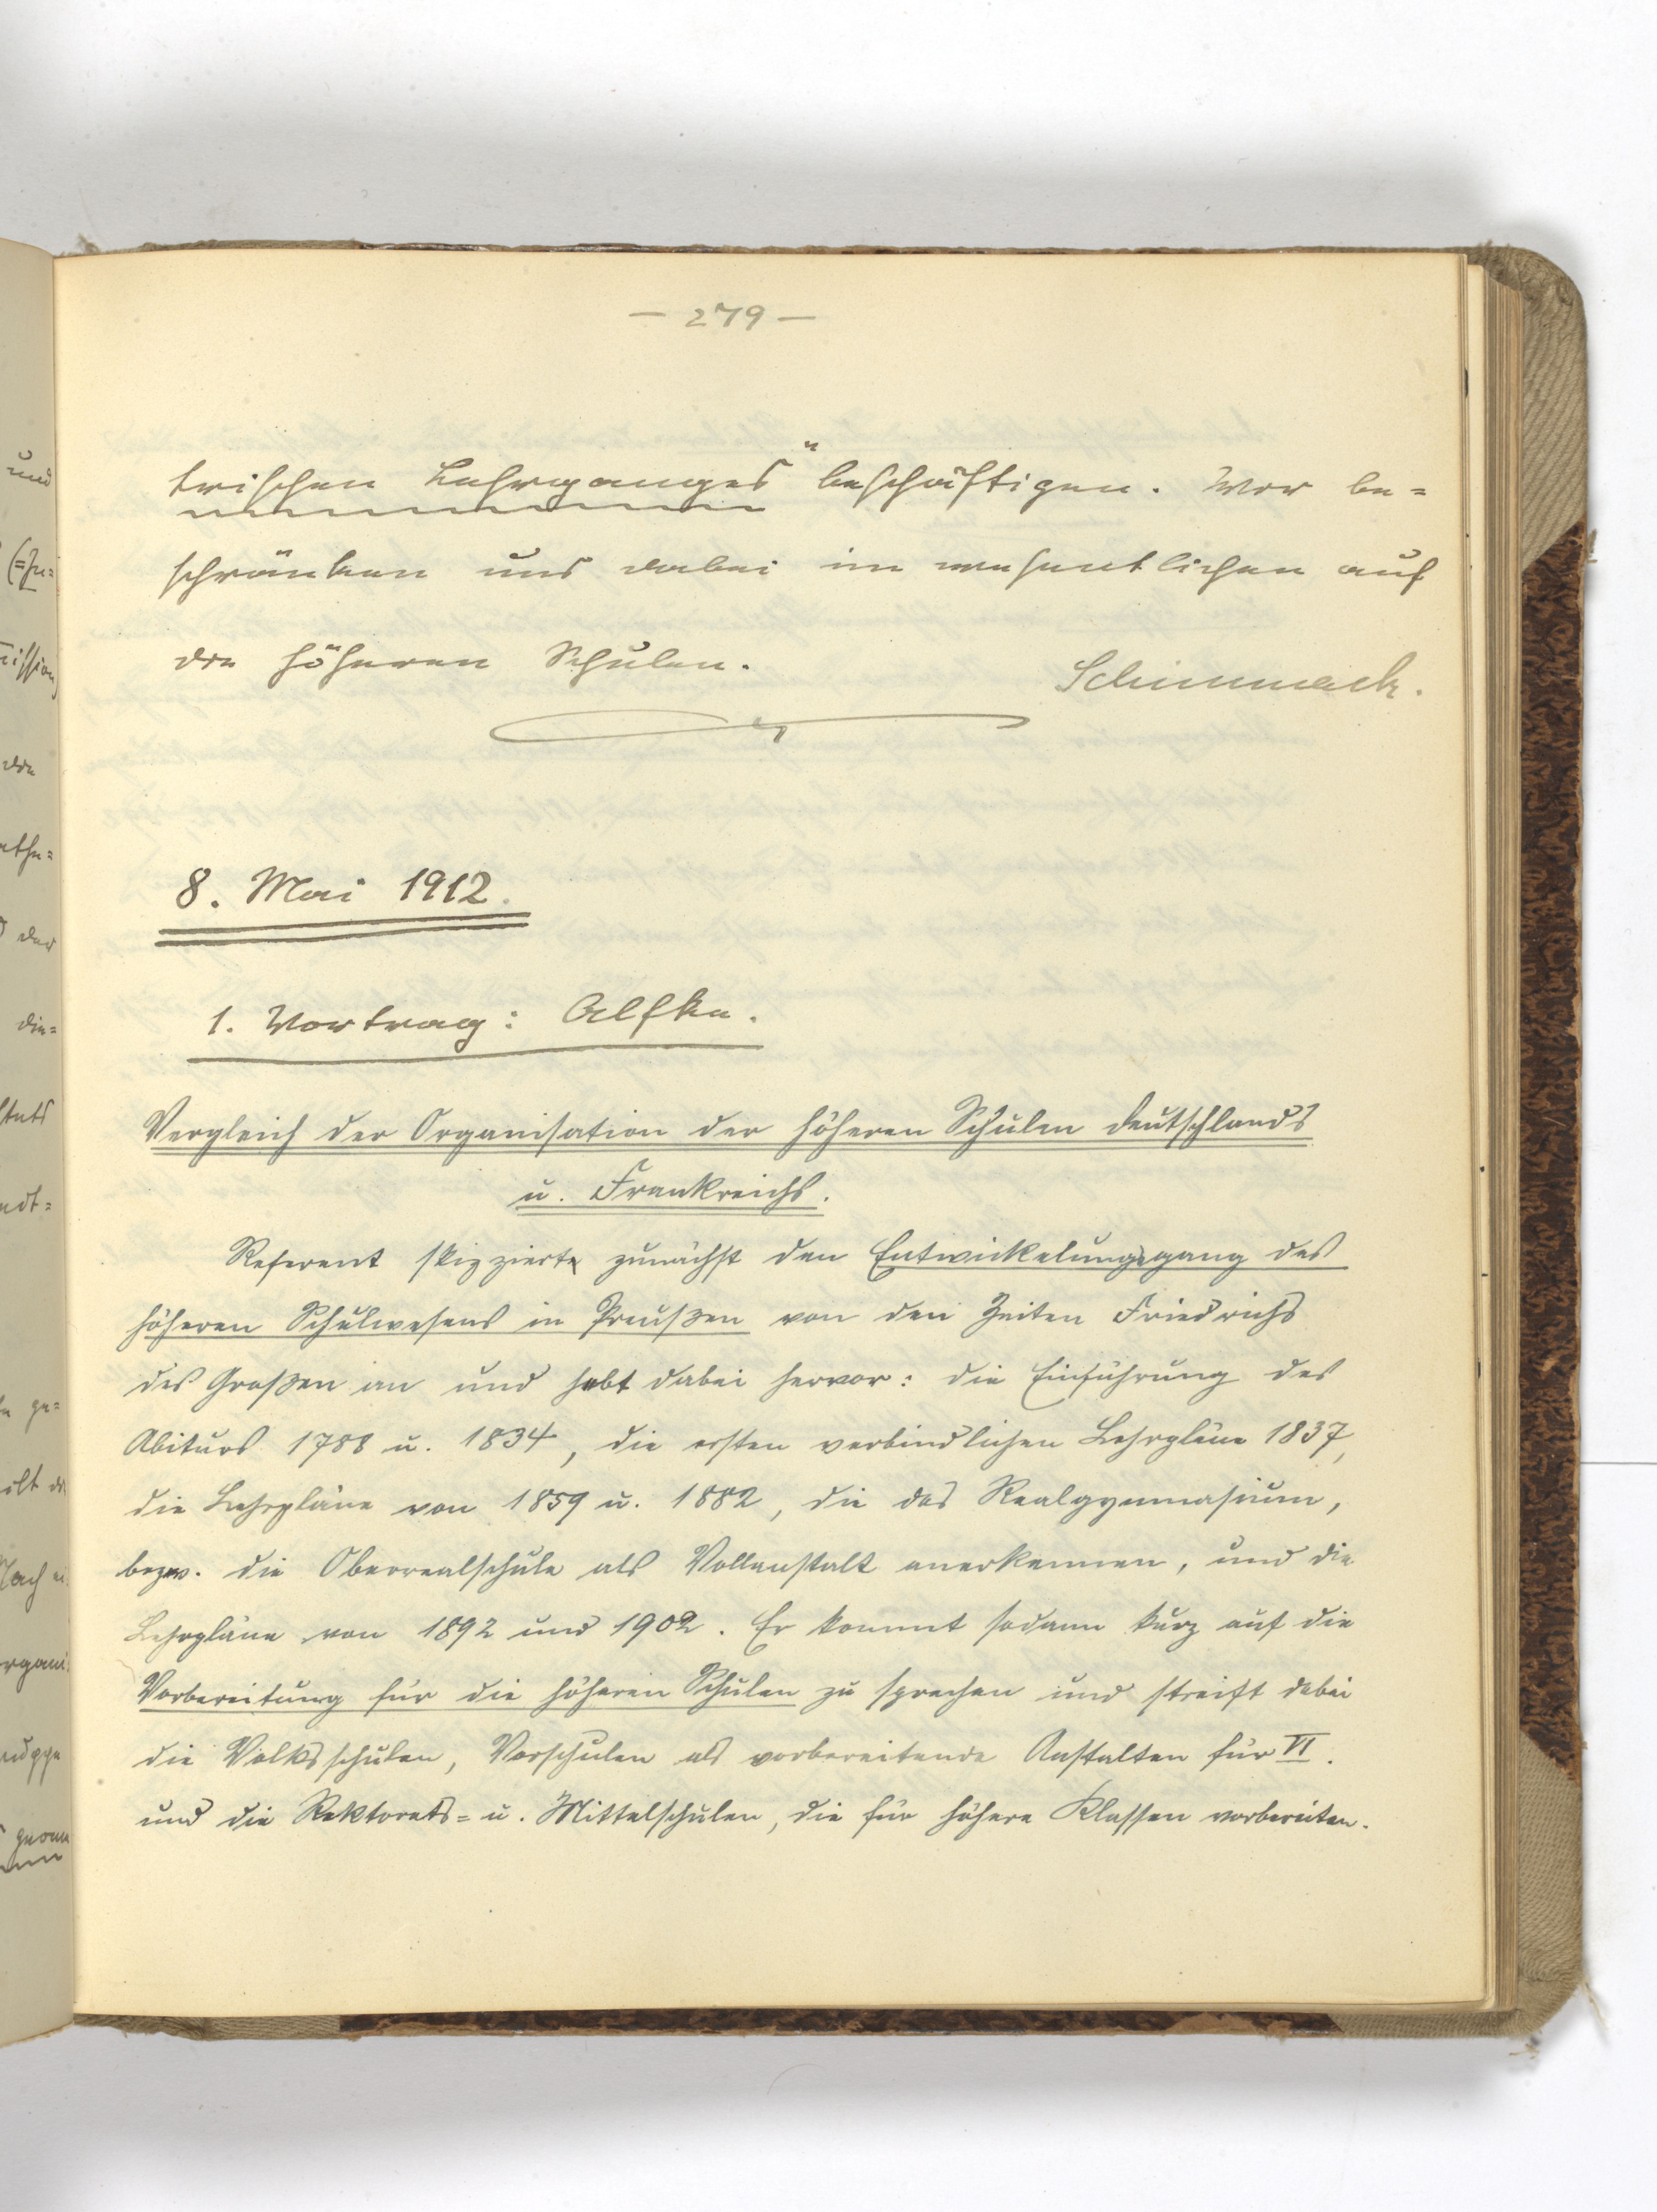 — 279 —
trischen Lehrganges" beschäftigen. Wir be=
schränken uns dabei im wesentlichen auf
die höheren Schulen.
Schimmack.
8. Mai 1912.
1. Vortrag: Alfke.
Vergleich der Organisation der höheren Schulen Deutschlands
u. Frankreichs.
Referent skizziert zunächst den Entwickelungsgang des
höheren Schulwesens in Preußen von den Zeiten Friedrichs
des Großen an und hebt dabei hervor: die Einführung des
Abiturs 1788 u. 1834, die ersten verbindlichen Lehrpläne 1837,
die Lehrpläne von 1859 u. 1882, die das Realgymnasium,
bezw. die Oberrealschule als Vollanstalt anerkennen, und die
Lehrpläne von 1892 und 1902. Er kommt sodann kurz auf die
Vorbereitung für die höheren Schulen zu sprechen und streift dabei
die Volksschulen, Vorschulen als vorbereitende Anstalten für VI.
und die Rektorats= u. Mittelschulen, die für höhere Klassen vorbereiten.